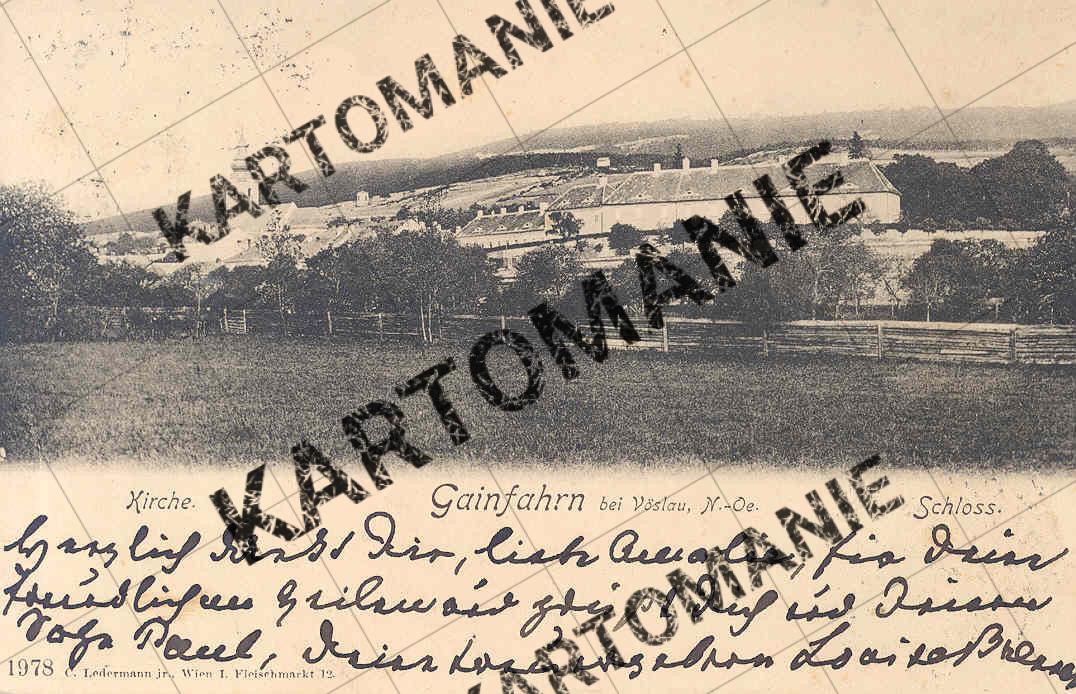 KARTOMANIE
KARTOMANIE
KARTOMANIE
Kirche. Gainfahrn bei Vöslau, N.-Oe. Schloss.
Herzlich dankt Dir, liebe Amalie, für Deine
freundlichen Zeilen und grüßt Dich und Deinen
Sohn Paul, Deine Louise
1978 C. Ledermann jr., Wien I. Fleischmarkt 12.